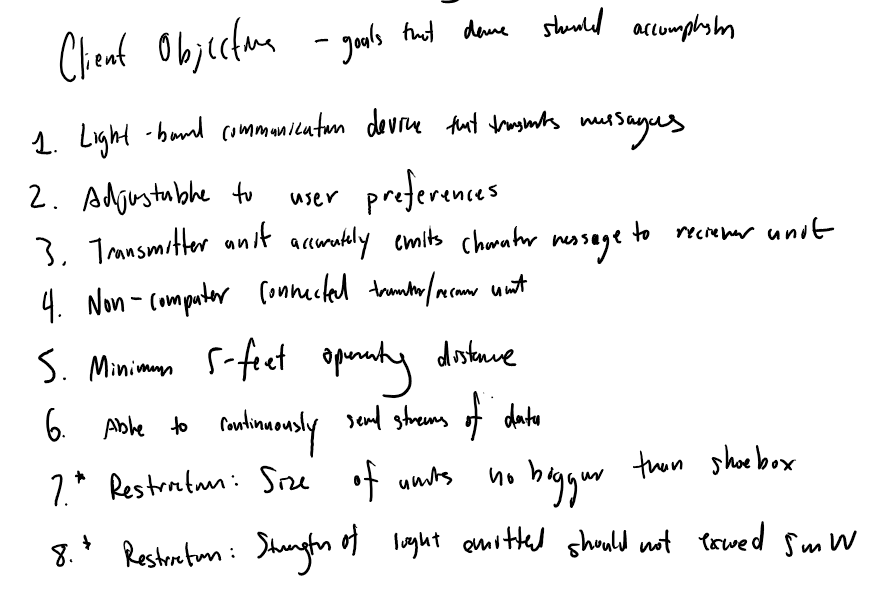 Client Objective - goals that device should accomplish
1. Light-based communication device that transmits messages
2. Adjustable to user preferences
3. Transmitter unit accurately emits character message to reciever unit
4. Non-computer connected transmitter/reciever unit
5. Minimum 5-feet operating distance
6. Able to continuously send streams of data
7.* Restriction: Size of units no bigger than shoebox
8.* Restriction: Strength of light emitted should not exceed 5mW